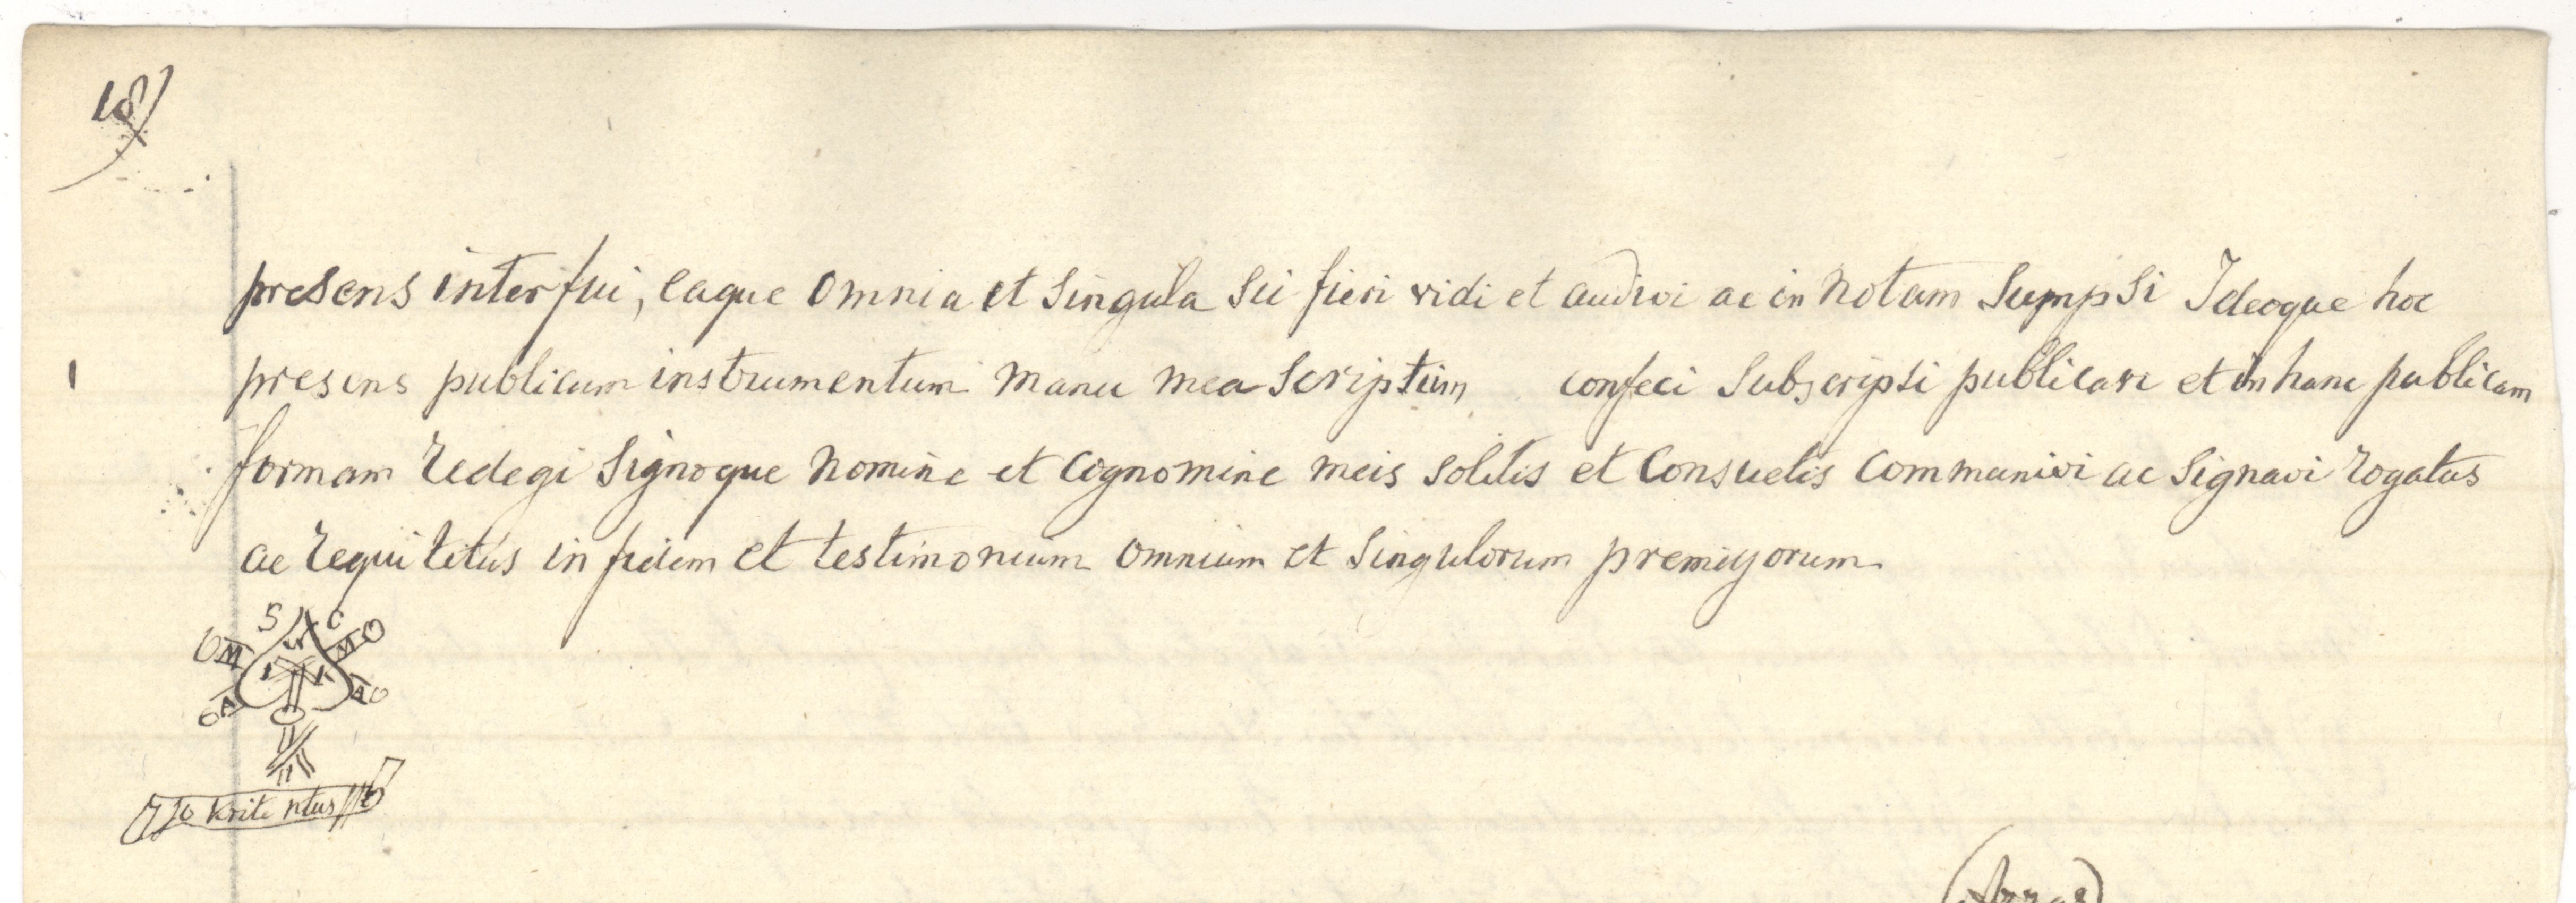 18
presens interfui, eaque omnia et singula sii fieri vidi et audivi ac in notam sumpsi Ideoque hoc
1 presens publicum instrumentum manu mea scriptum confeci subscripsi publicavi et in hanc publicam
formam redegi signoque nomine et cognomine meis solitis et consuetis communivi ac signavi rogatus
ac requisitus in fidem et testimonium omnium et singulorum premissorum
S C